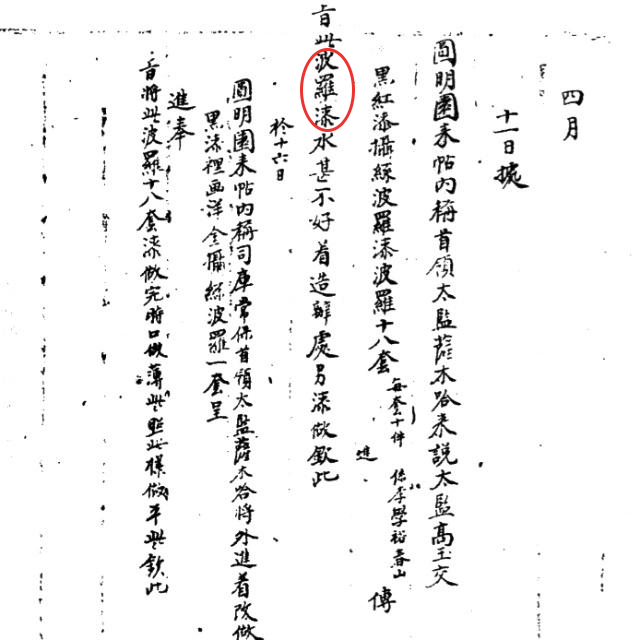 四月
十一日據
圓明園來帖內稱首領太監薩木哈來說太監高玉交
黑紅漆攝絲波羅漆波羅十八套 每套十件 係李學裕春山 進 傳
旨此波羅漆水甚不好着造辦處另漆做欽此
於十六日
圓明園來帖內稱司庫常保首領太監薩木哈將外進着改做
黑漆裡畫洋金攝絲波羅一套呈
進奉
旨將此波羅十八套漆做完時口做薄些照此樣做平些欽此